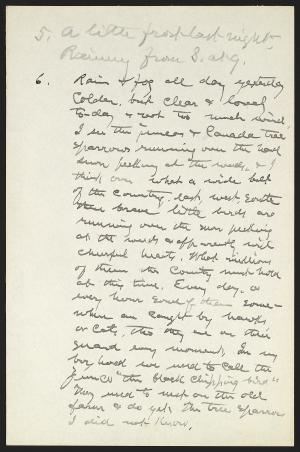 5. A little frost last night,
Raining from S. at 9.
6. Rain & fog all day yesterday
Colder, but clear & lovely
to-day & not too much wind.
I see the juncos & Canada tree
sparrows running over the hard
snow pecking at the weeds, & I
think over what a wide belt
of the Country, east, west, south
these brave little birds are
running over the snow pecking
at the weeds & apparently with
cheerful hearts. What millions
of them the Country must hold
at this time. Every day, &
every hour some of them some-
where are caught by hawks
or cats, tho they are on their
guard every moment. In my
boyhood we used to call the
Junco "the black chipping bird"
They used to nest on the old
farm & do yet. The tree sparrow
I did not know.